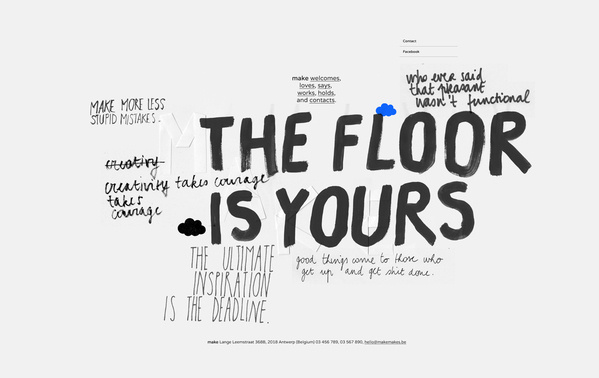 Contact
Facebook
make welcomes,
loves, says,
works, holds,
and contacts.
who ever said
that pleasant
wasn't functional
MAKE MORE LESS
STUPID MISTAKES.
THE FLOOR
IS YOURS
creativy
creativity takes courage
takes
courage
THE ULTIMATE
INSPIRATION
IS THE DEADLINE.
good things come to those who
get up and get shit done.
make Lange Leemstraat 388B, 2018 Antwerp (Belgium) 03 456 789, 03 567 890, hello@makemakes.be